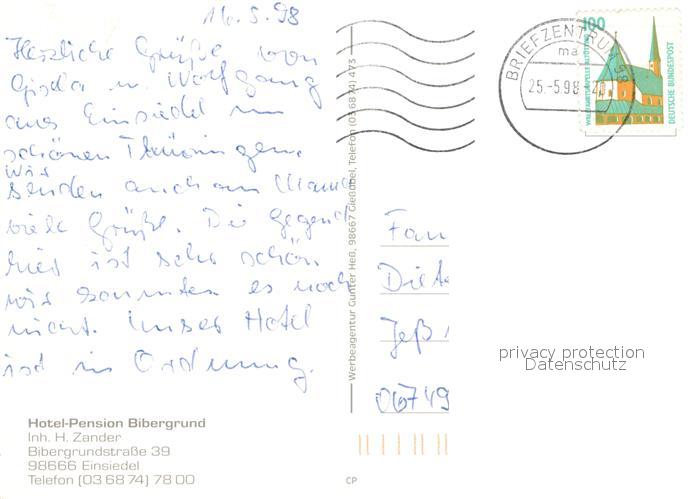 16.5.98
Herzliche Grüße von
Gisela u. Wolfgang
aus Einsiedel im
schönen Thüringen.
Wir
senden auch an Mama
viele Grüße. Die Gegend
hier ist sehr schön
wir kannten es noch
nicht. Unser Hotel
ist in Ordnung.
Hotel-Pension Bibergrund
Inh. H. Zander
Bibergrundstraße 39
98666 Einsiedel
Telefon (03 68 74) 7 80 00
Werbeagentur Gunter Heß, 98667 Gießübel, Telefon (03 68 74) 473
CP
BRIEFZENTRUM 98
ma
25.-5.98
100
DEUTSCHE BUNDESPOST
WALLFAHRTSKAPELLE ALTÖTTING
Fam
Diet
Jeß
06749
privacy protection
Datenschutz